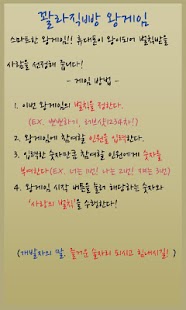 짤라직빠 왕게임
스마트한 왕게임!! 휴대폰이 왕이되어 벌칙받을
사람을 선정해 줍니다!
- 게임 방법 -
1. 이번 왕게임의 벌칙을 정한다.
(EX. 벌주마시기, 1234차!)
2. 왕게임에 참여할 인원을 입력한다.
3. 입력한 숫자만큼 참여할 인원에게 숫자를
부여한다(EX. 너는 1번! 나는 2번! 쟤는 3번)
4. 왕게임 시작 버튼을 눌러 해당하는 숫자와
'사랑의 벌칙'을 수행한다!
(개발자의 말. 즐거운 술자리 되시고 힘내시길!)